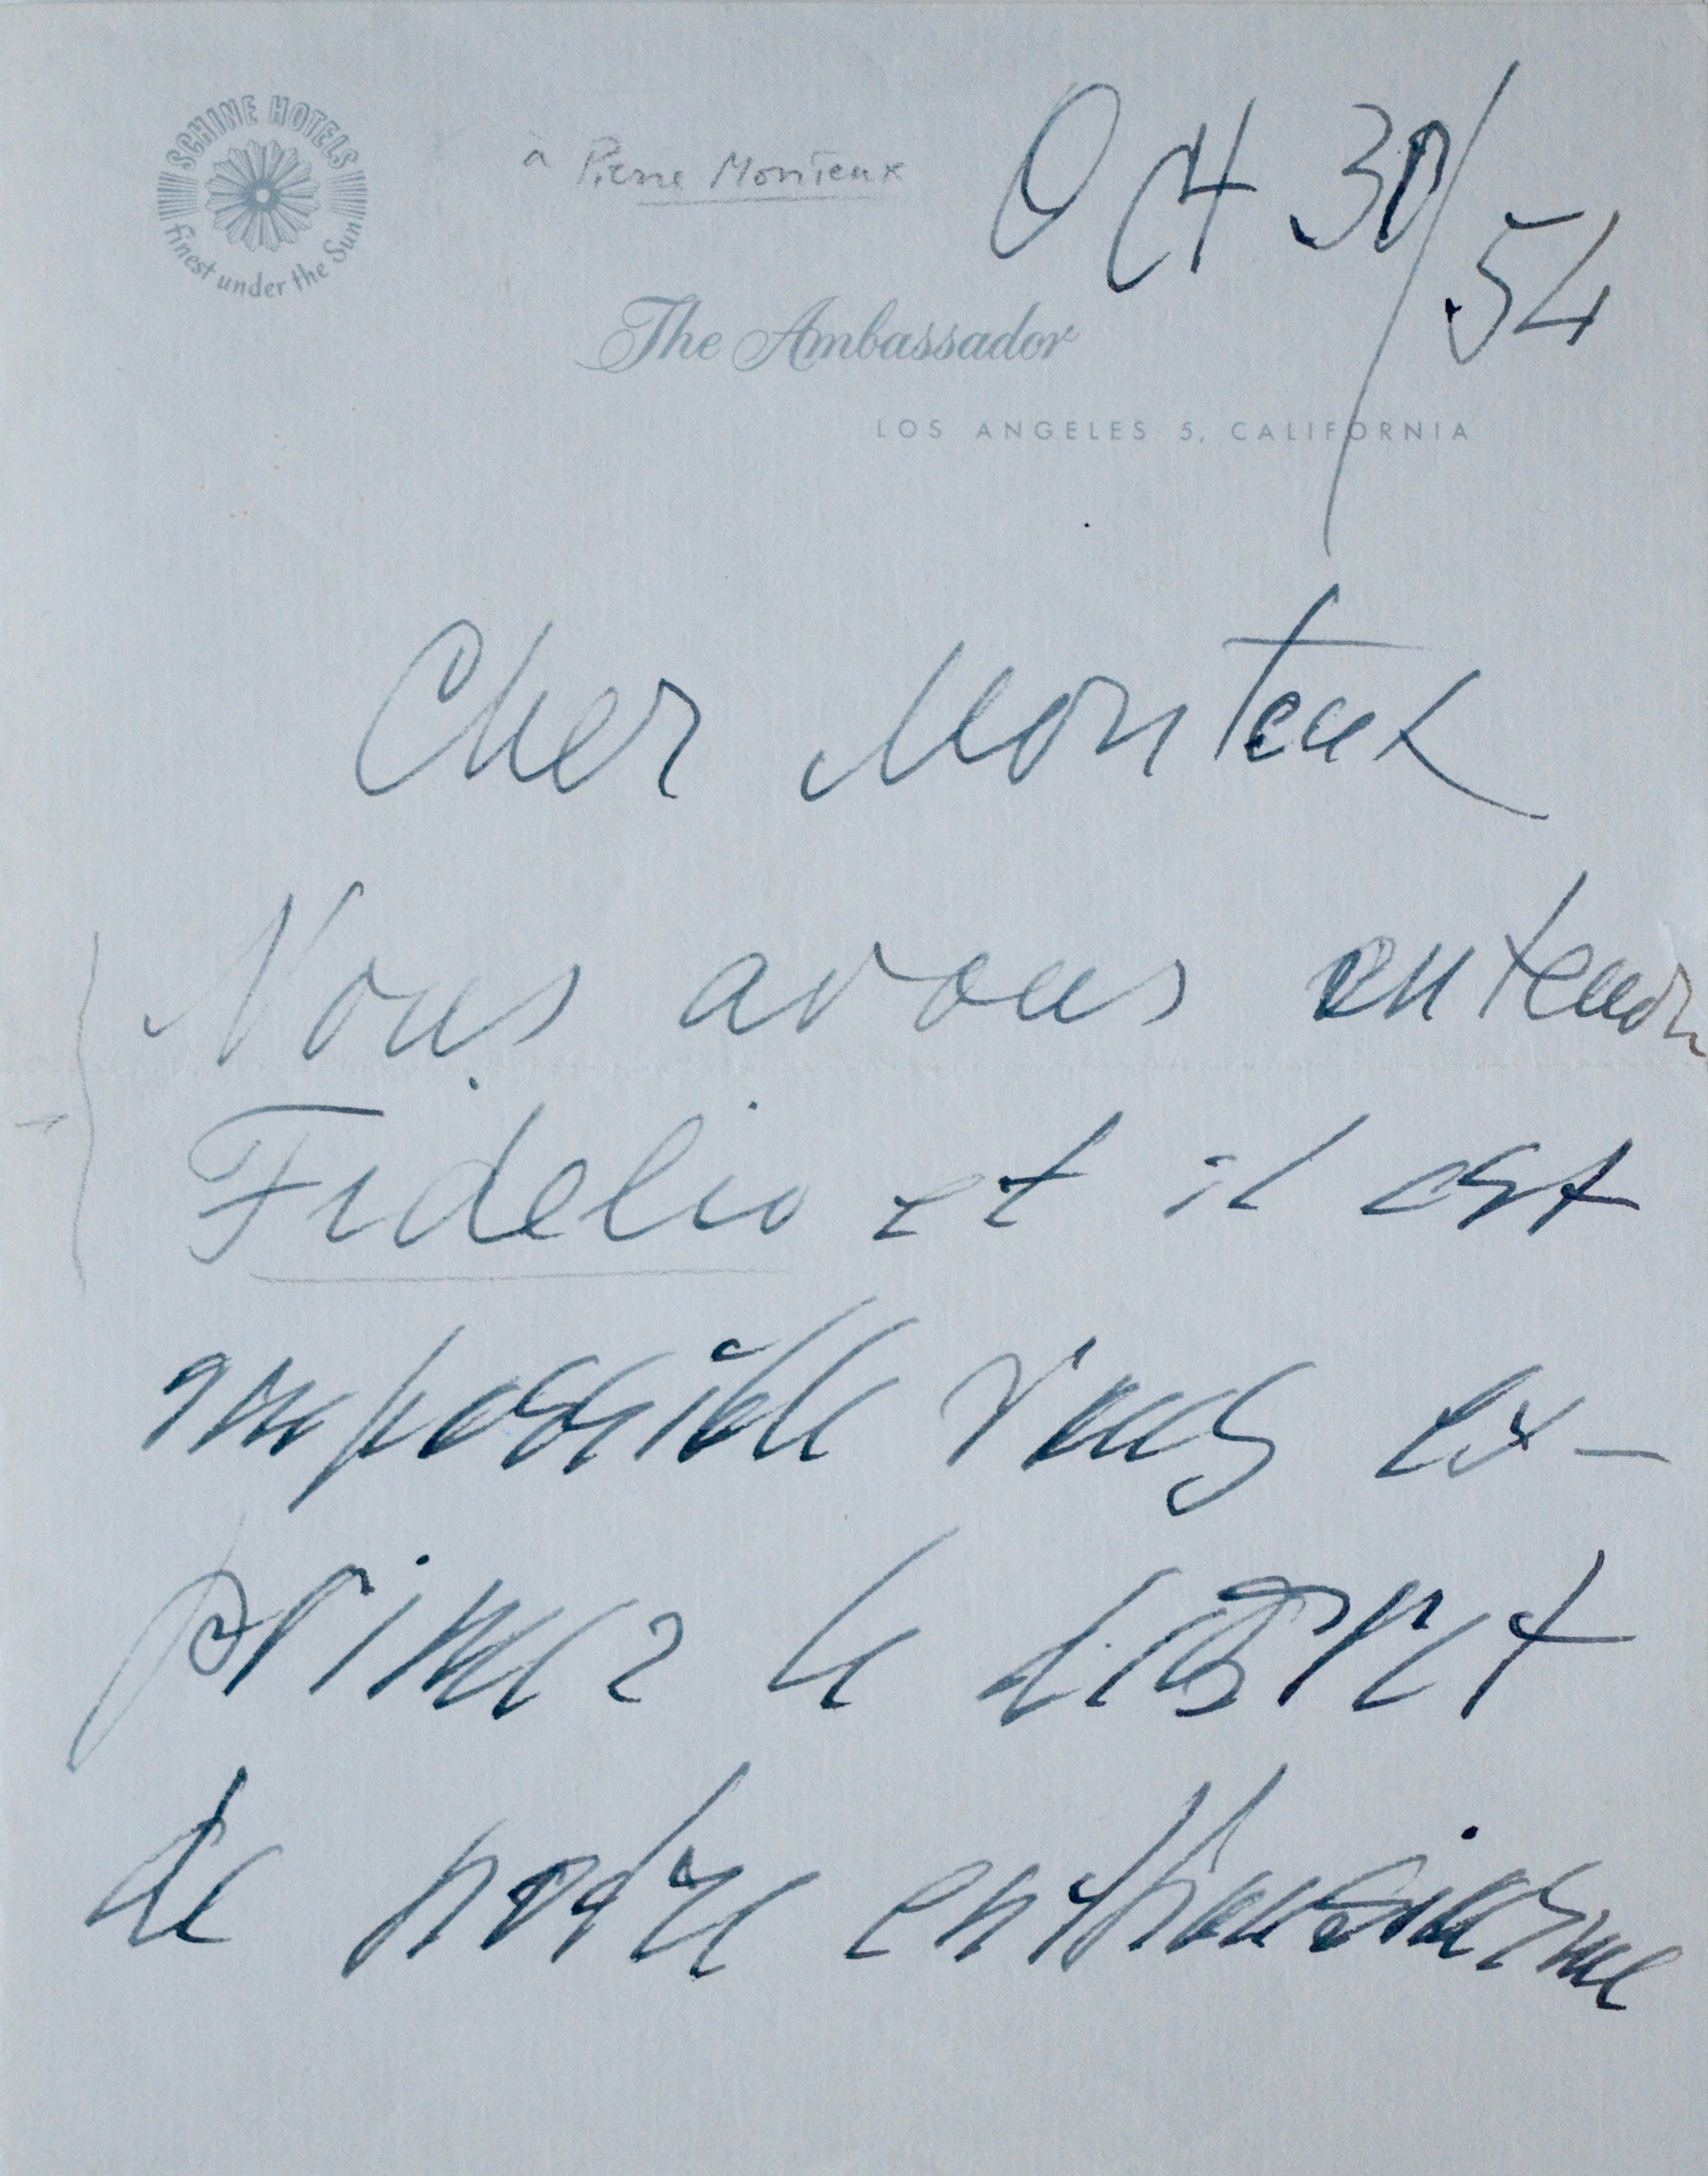 SCHINE HOTELS
Finest under the Sun
à Pierre Monteux
Oct 30/54
The Ambassador
LOS ANGELES 5, CALIFORNIA
Cher Monteux
Nous avons entendu
Fidelio et il est
impossible vous ex-
primer le degret
de notre enthousiasme